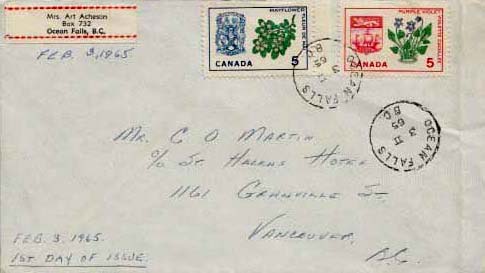 Mrs. Art Acheson
Box 732
Ocean Falls, B.C.
FEB. 3, 1965
MAYFLOWER
FLEUR DE MAI
CANADA 5
PURPLE VIOLET
VIOLETTE CUCULLÉE
CANADA 5
OCEAN FALLS
3 II
65
B.C.
OCEAN FALLS
3 II
65
B.C.
MR. C O MARTIN
c/o ST. HELENS HOTEL
1161 GRANVILLE ST.
VANCOUVER,
B.C.
FEB. 3. 1965.
1ST DAY OF ISSUE.